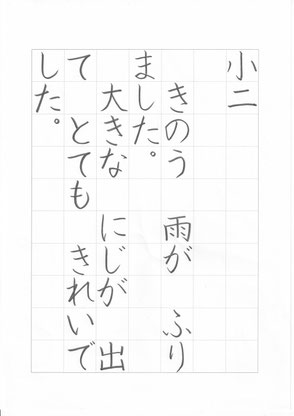 小二
きのう　雨が　ふり
ました。
大きな　にじが　出
て　とても　きれいで
した。